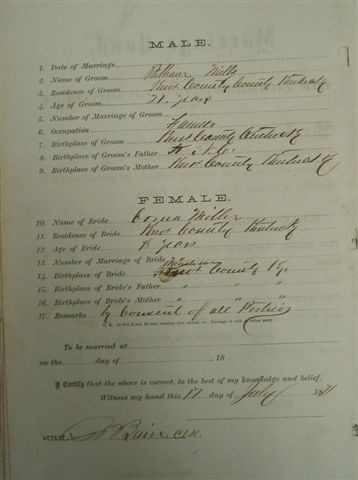 MALE.
1. Date of Marriage
2. Name of Groom Mills
3. Residence of Groom Knox County County Kentucky
4. Age of Groom 21 years
5. Number of Marriage of Groom
6. Occupation Farmer
7. Birthplace of Groom Knox County Kentucky
8. Birthplace of Groom's Father N.C.
9. Birthplace of Groom's Mother Knox County Kentucky
FEMALE.
10. Name of Bride Miller
11. Residence of Bride Knox County Kentucky
12. Age of Bride 18 years
13. Number of Marriage of Bride
14. Birthplace of Bride Knox County Ky.
15. Birthplace of Bride's Father " " "
16. Birthplace of Bride's Mother " " "
17. Remarks By Consent of all Parties
To be married at
on the day of , 18
I Certify that the above is correct, to the best of my knowledge and belief.
Witness my hand this 17 day of July 1871
ATTEST,